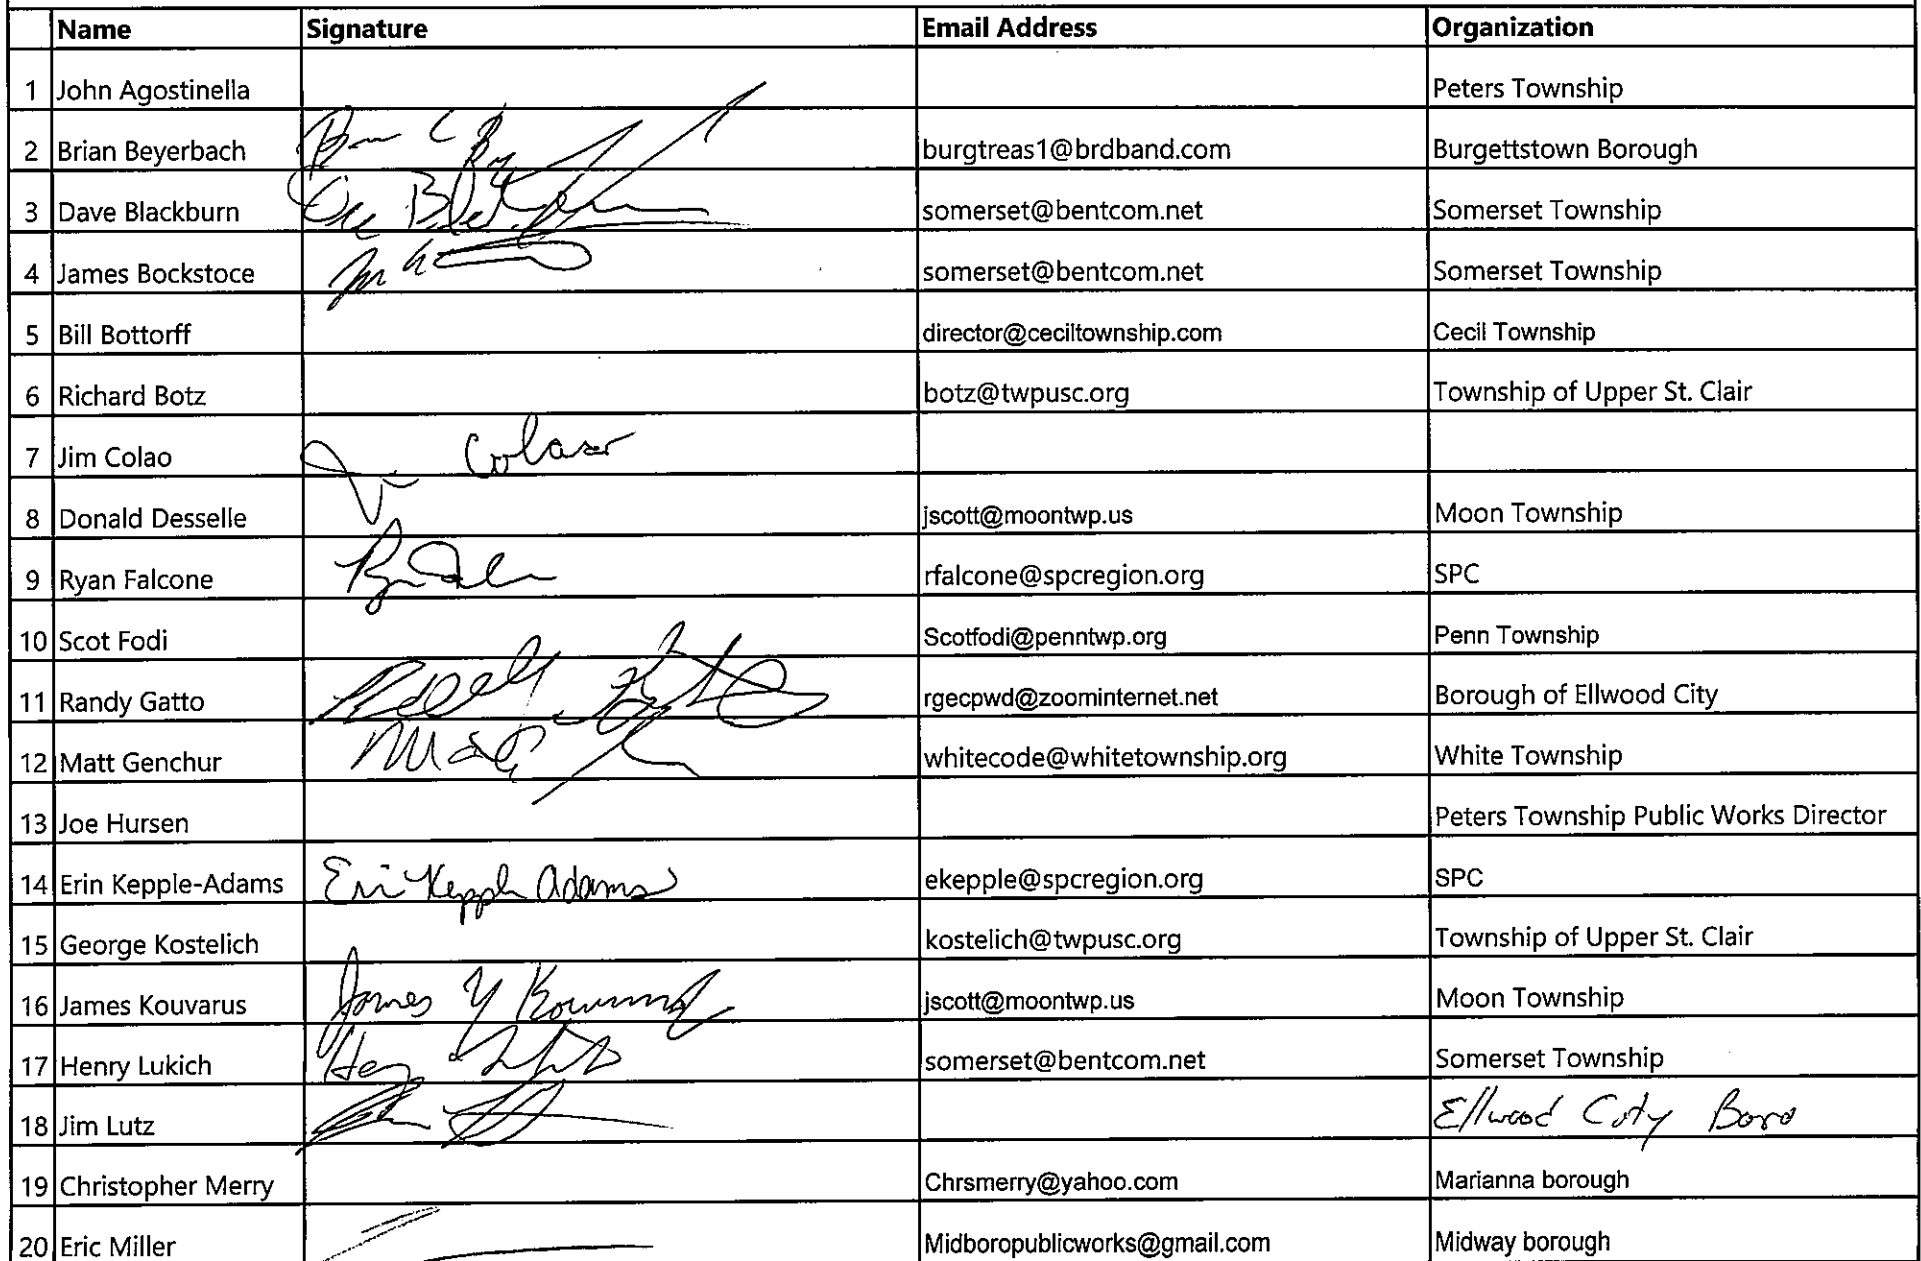 Name Signature Email Address Organization
1 John Agostinella Peters Township
2 Brian Beyerbach burgtreas1@brdband.com Burgettstown Borough
3 Dave Blackburn somerset@bentcom.net Somerset Township
4 James Bockstoce somerset@bentcom.net Somerset Township
5 Bill Bottorff director@ceciltownship.com Cecil Township
6 Richard Botz botz@twpusc.org Township of Upper St. Clair
7 Jim Colao
8 Donald Desselle jscott@moontwp.us Moon Township
9 Ryan Falcone rfalcone@spcregion.org SPC
10 Scot Fodi Scotfodi@penntwp.org Penn Township
11 Randy Gatto rgecpwd@zoominternet.net Borough of Ellwood City
12 Matt Genchur whitecode@whitetownship.org White Township
13 Joe Hursen Peters Township Public Works Director
14 Erin Kepple-Adams Erin Kepple Adams ekepple@spcregion.org SPC
15 George Kostelich kostelich@twpusc.org Township of Upper St. Clair
16 James Kouvarus James jscott@moontwp.us Moon Township
17 Henry Lukich somerset@bentcom.net Somerset Township
18 Jim Lutz Ellwood City Boro
19 Christopher Merry Chrsmerry@yahoo.com Marianna borough
20 Eric Miller Midboropublicworks@gmail.com Midway borough